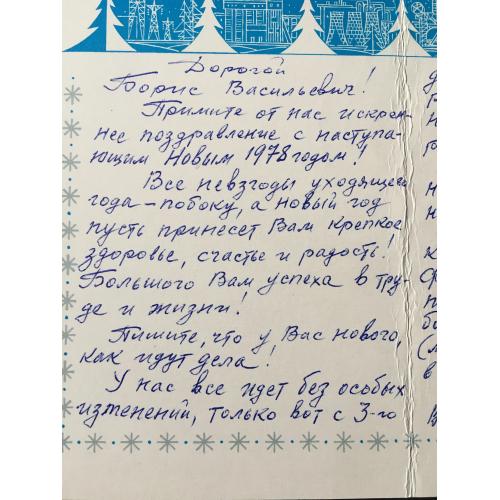 Дорогой
Борис Васильевич!
Примите от нас искрен-
нее поздравление с наступа-
ющим Новым 1978 годом!
Все невзгоды уходящего
года – побоку, а новый год
пусть принесет Вам крепкое
здоровье, счастье и радость!
Большого Вам успеха в тру-
де и жизни!
Пишите, что у Вас нового,
как идут дела!
У нас все идет без особых
изменений, только вот с 3-го